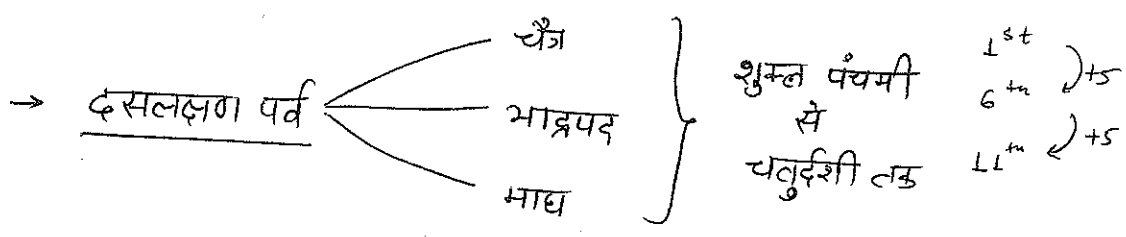 चैत्र
→ दसलक्षण पर्व
भाद्रपद
माघ
शुक्ल पंचमी
से
चतुर्दशी तक
1st
6th
11th
+5
+5